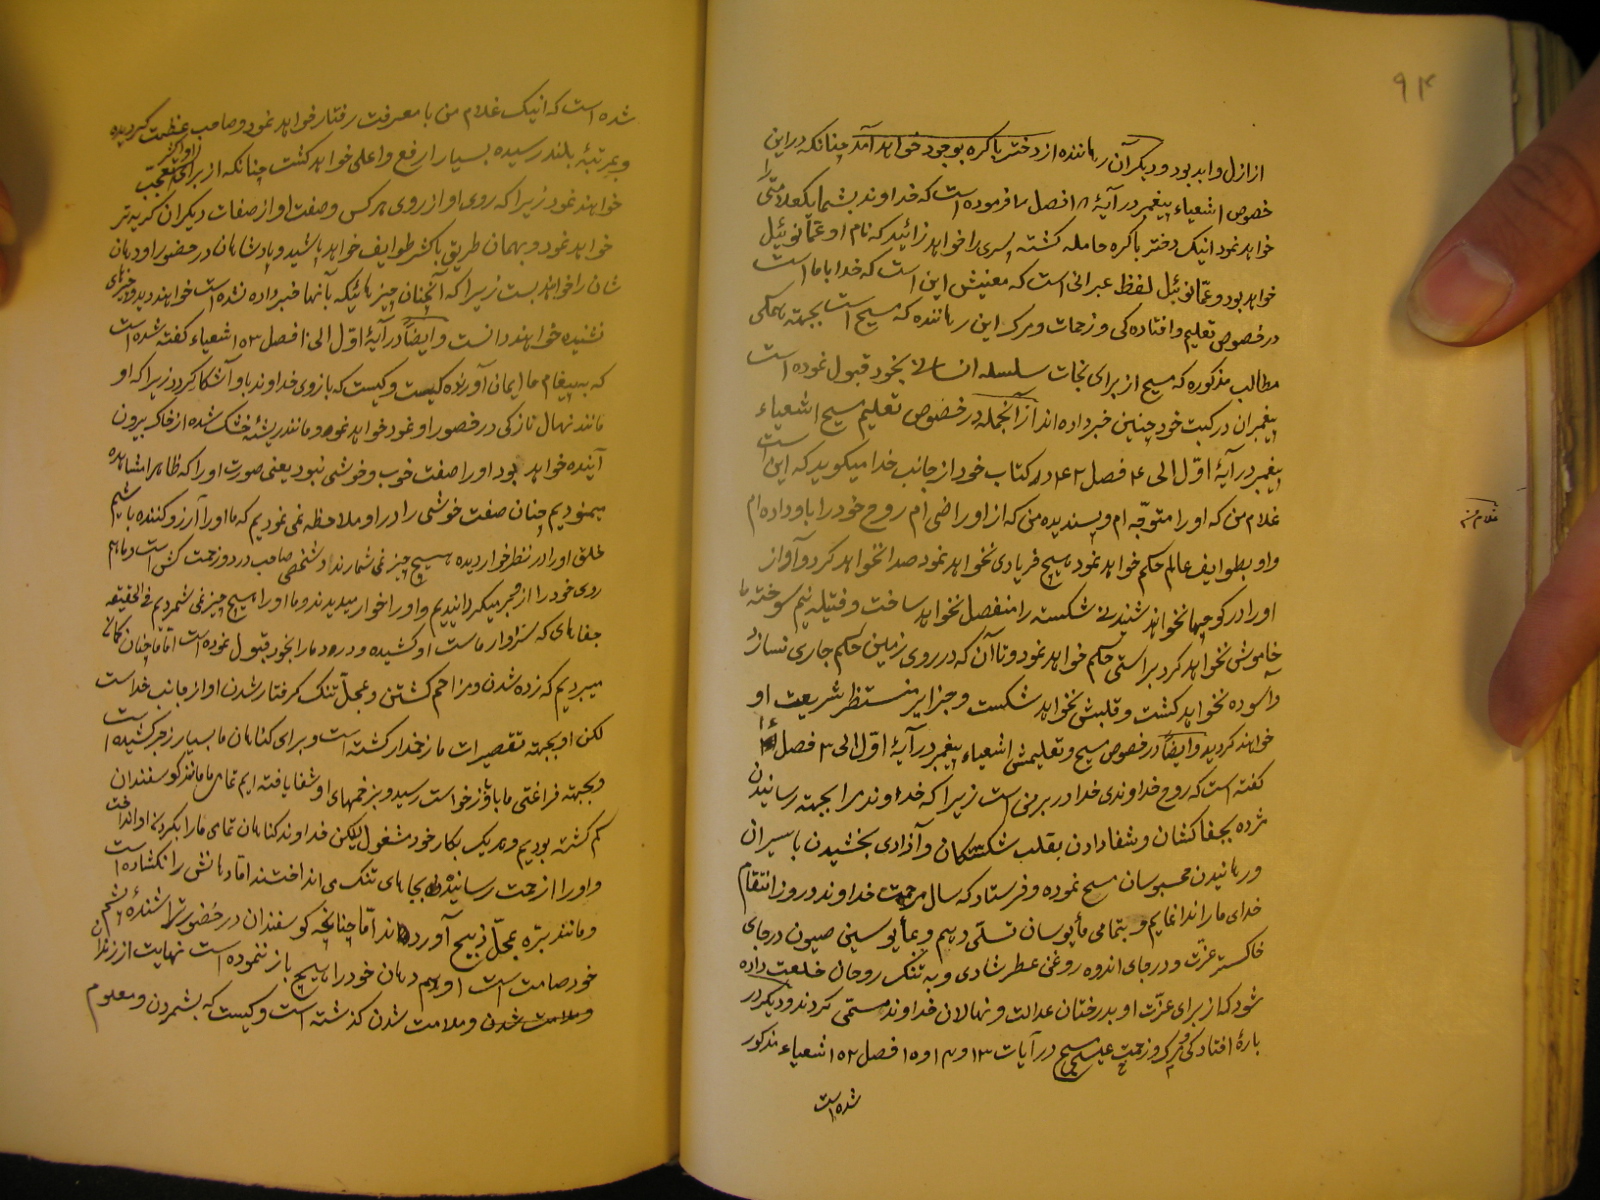 ۹۴
از ازل و ابد بود و دیگر آن رهاننده از دختر باکره بوجود خواهد آمد چنانکه در این
خصوص اشعیاء پیغمبر در آیهٔ فصل ۷ فرموده است که خداوند بشما یکعلامتی را
خواهد نمود اینک دختر باکره حامله کشته پسری را خواهد زائید که نام او عمّانوئیل
خواهد بود و عمّانوئیل لفظ عبرانی است که معنیش این است که خدا با ما است
در خصوص تعلیم و افتاده کی و زحمات و مرک این رهاننده که مسیح است بجهته همکی
مطالب مذکوره که مسیح از برای نجات سلسله انسانی بخود قبول نموده است
پیغمبران در کتب خود چنین خبر داده اند از آنجمله در خصوص تعلیم مسیح اشعیاء
پیغمبر در آیهٔ اوّل الی ۴ فصل ۴۲ کتاب خود از جانب خدا میکوید که این است
غلام من که او را متوجّه ام و پسندیده من که از او راضی ام روح خود را باو داده ام
و او بطوایف عالم حکم خواهد نمود هیچ فریادی نخواهد نمود صدا نخواهد کرد و آواز
او را در کوچها نخواهند شنید نی شکسته را منفصل نخواهد ساخت و فتیله نیم سوخته را
خاموش نخواهد کرد براستی حکم خواهد نمود و تا آن که در روی زمین حکم جاری نسازد
و اسوده نخواهد کشت و قلبش نخواهد شکست و جزایر منتظر شریعت او
خواهند کردید و ایضاً در خصوص مسیح و تعلیمش اشعیاء پیغمبر در آیهٔ اوّل الی ۳ فصل
کفته است که روح خداوندی خدا در بر من است زیرا که خداوند مرا بجهته رسانیدن
مژده بجفاکشان و شفا دادن بقلب شکستکان و آزادی بخشیدن باسیران
و رهانیدن محبوسان مسح نموده و فرستاد که سال مرحمت خداوند در روز انتقام
خدای ما را ندا نمایم و بتمامی مأیوسان تسلّی دهم و بمأیوسین صیون در جای
خاکستر عزّت و در جای اندوه روغن عطر شادی و به تنک روحان خلعت داده
شود که از برای عزّت او بدرختان عدالت و نهالان خداوند مسمّی کردند و دیکر در
بارهٔ افتادکی و مرک و زحمت عیسی مسیح در آیات ۱۳ و ۱۴ و ۱۵ فصل ۵۲ اشعیاء مذکور
شده است
غلام من
شده است که اینک غلام من با معرفت رفتار خواهد نمود و صاحب عظمت کردیده
و بمرتبهٔ بلند رسیده بسیار ارفع و اعلی خواهد کشت چنانکه از برای او اکثر تعجّب
خواهند نمود زیرا که روی او از روی هر کس و صفت او از صفات دیکران کریه تر
خواهد نمود و بهمان طریق باکثر طوایف خواهد پاشید و پادشاهان در حضور او دهان
شان را خواهند بست زیرا که آنچنان چیزهائیکه بآنها خبر داده نشده است خواهند دید و چیزهای
نشنیده خواهند دانست و ایضاً در آیهٔ اوّل الی ۱۰ فصل ۵۳ اشعیاء کفته شده است
که به پیغام ما ایمان آورنده کیست و کیست که بازوی خداوند باو آشکار کردد زیرا که او
مانند نهال نازکی در حضور او نمود خواهد نمود و مانند ریشهٔ خشک شده از خاک بیرون
آینده خواهد بود او را صفت خوب و خوشی نبود یعنی صورت او را که ظاهرا مشاهده
بنمودیم چنان صفت خوشی را در او ملاحظه نمی نمودیم که ما او را آرزو کننده باشیم
خلق او را در نظر خوار دیده هیچ چیز نمی شمارند و شخصی صاحب درد و زحمت کش است و ما هم
روی خود را از میکردانیدیم و او را خوار میدیدند و ما او را هیچ چیز نمی شمردیم فی الحقیقه
جفاهای که سزاوار ماست او کشیده و درد ما را بخود قبول نموده است امّا ما چنان کمان
میبردیم که زده شدن و مزاحم کشتن و بمحلّ تنک کرفتار شدن او از جانب خداست
لکن او بجهته تقصیرات ما زخمدار کشته است و برای کناهان ما بسیار زجر کشیده است
و بجهته فراغتی ما باو زخواست رسید و بزخمهای او شفا یافته ایم تمامی ما مانند کوسفندان
کم کشته بودیم و هر یک بکار خود مشغول لیکن خداوند کناهان تمامی ما را بکردن او انداخت
و او را از حمت رسانیده بجاهای تنک می انداختند امّا دهانش را نکشاده است
و مانند برّه بمحلّ ذبیح آورده اند امّا چنانچه کوسفندان در حضور تراشندهٔ پشم
خود صامت است او هم دهان خود را هیچ باز ننموده است نهایت از زندان
و ملامت شدن کذشته است و کیست که بشمردن و معلوم